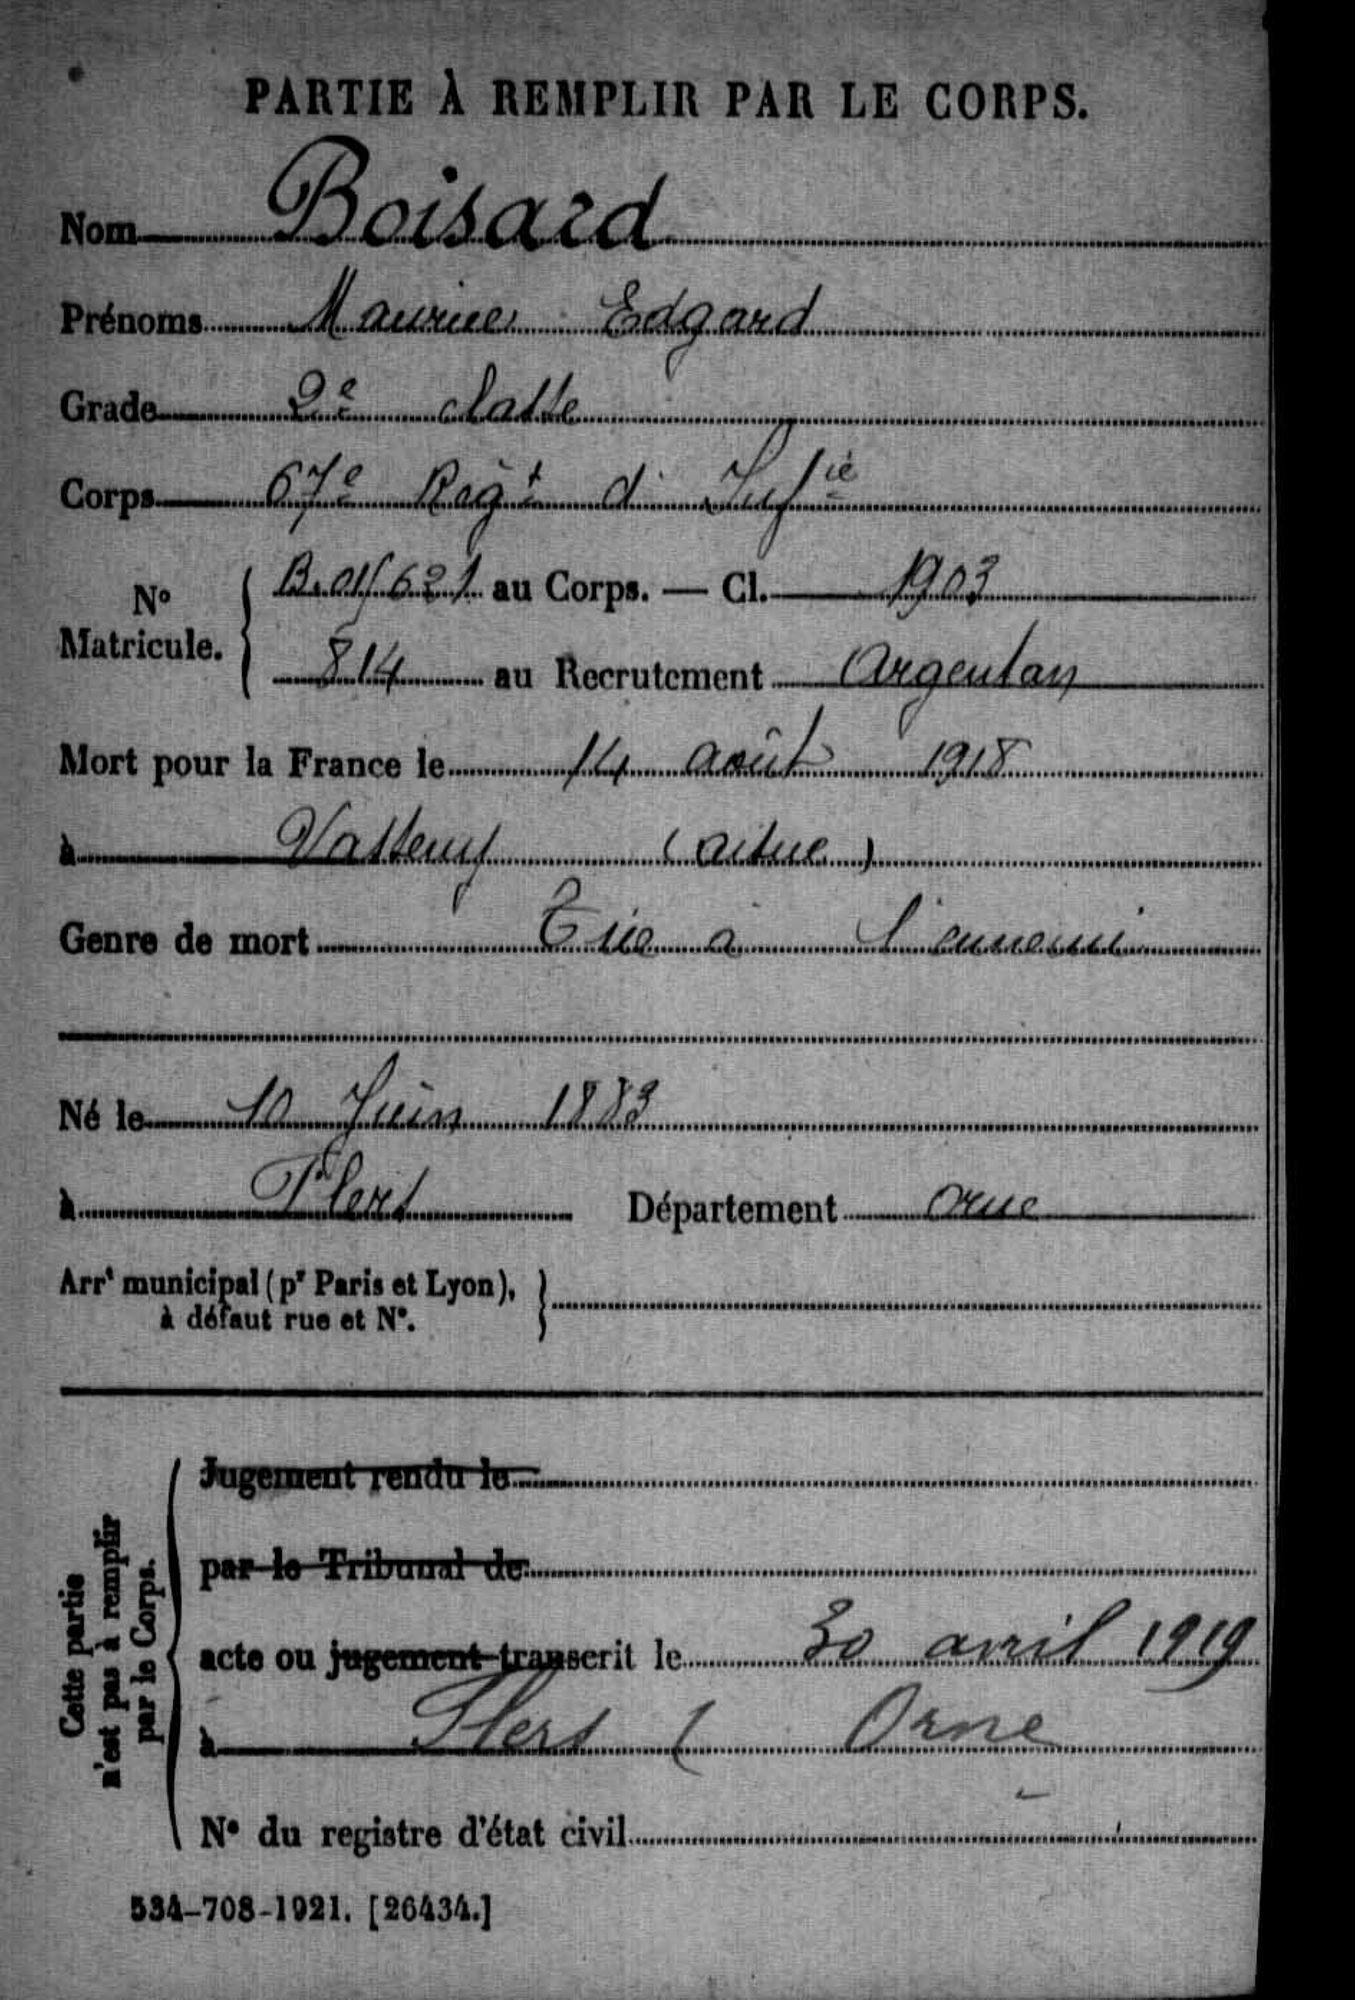 PARTIE À REMPLIR PAR LE CORPS.
Nom Boisard
Prénoms Maurice Edgard
Grade 2e classe
Corps 67e Régt d' Infie
N° Matricule. 621 au Corps. — Cl. 1903
814 au Recrutement Argentan
Mort pour la France le 14 août 1918
à Vasseny (Aisne)
Genre de mort Tué à l'ennemi
Né le 10 Juin 1883
à Flers Département Orne
Arrt municipal (pr Paris et Lyon),
à défaut rue et N°.
Cette partie
n'est pas à remplir
par le Corps.
Jugement rendu le
par le Tribunal de
acte ou jugement transcrit le 30 avril 1919
à Flers ( Orne
N° du registre d'état civil
534-708-1921. [26434.]